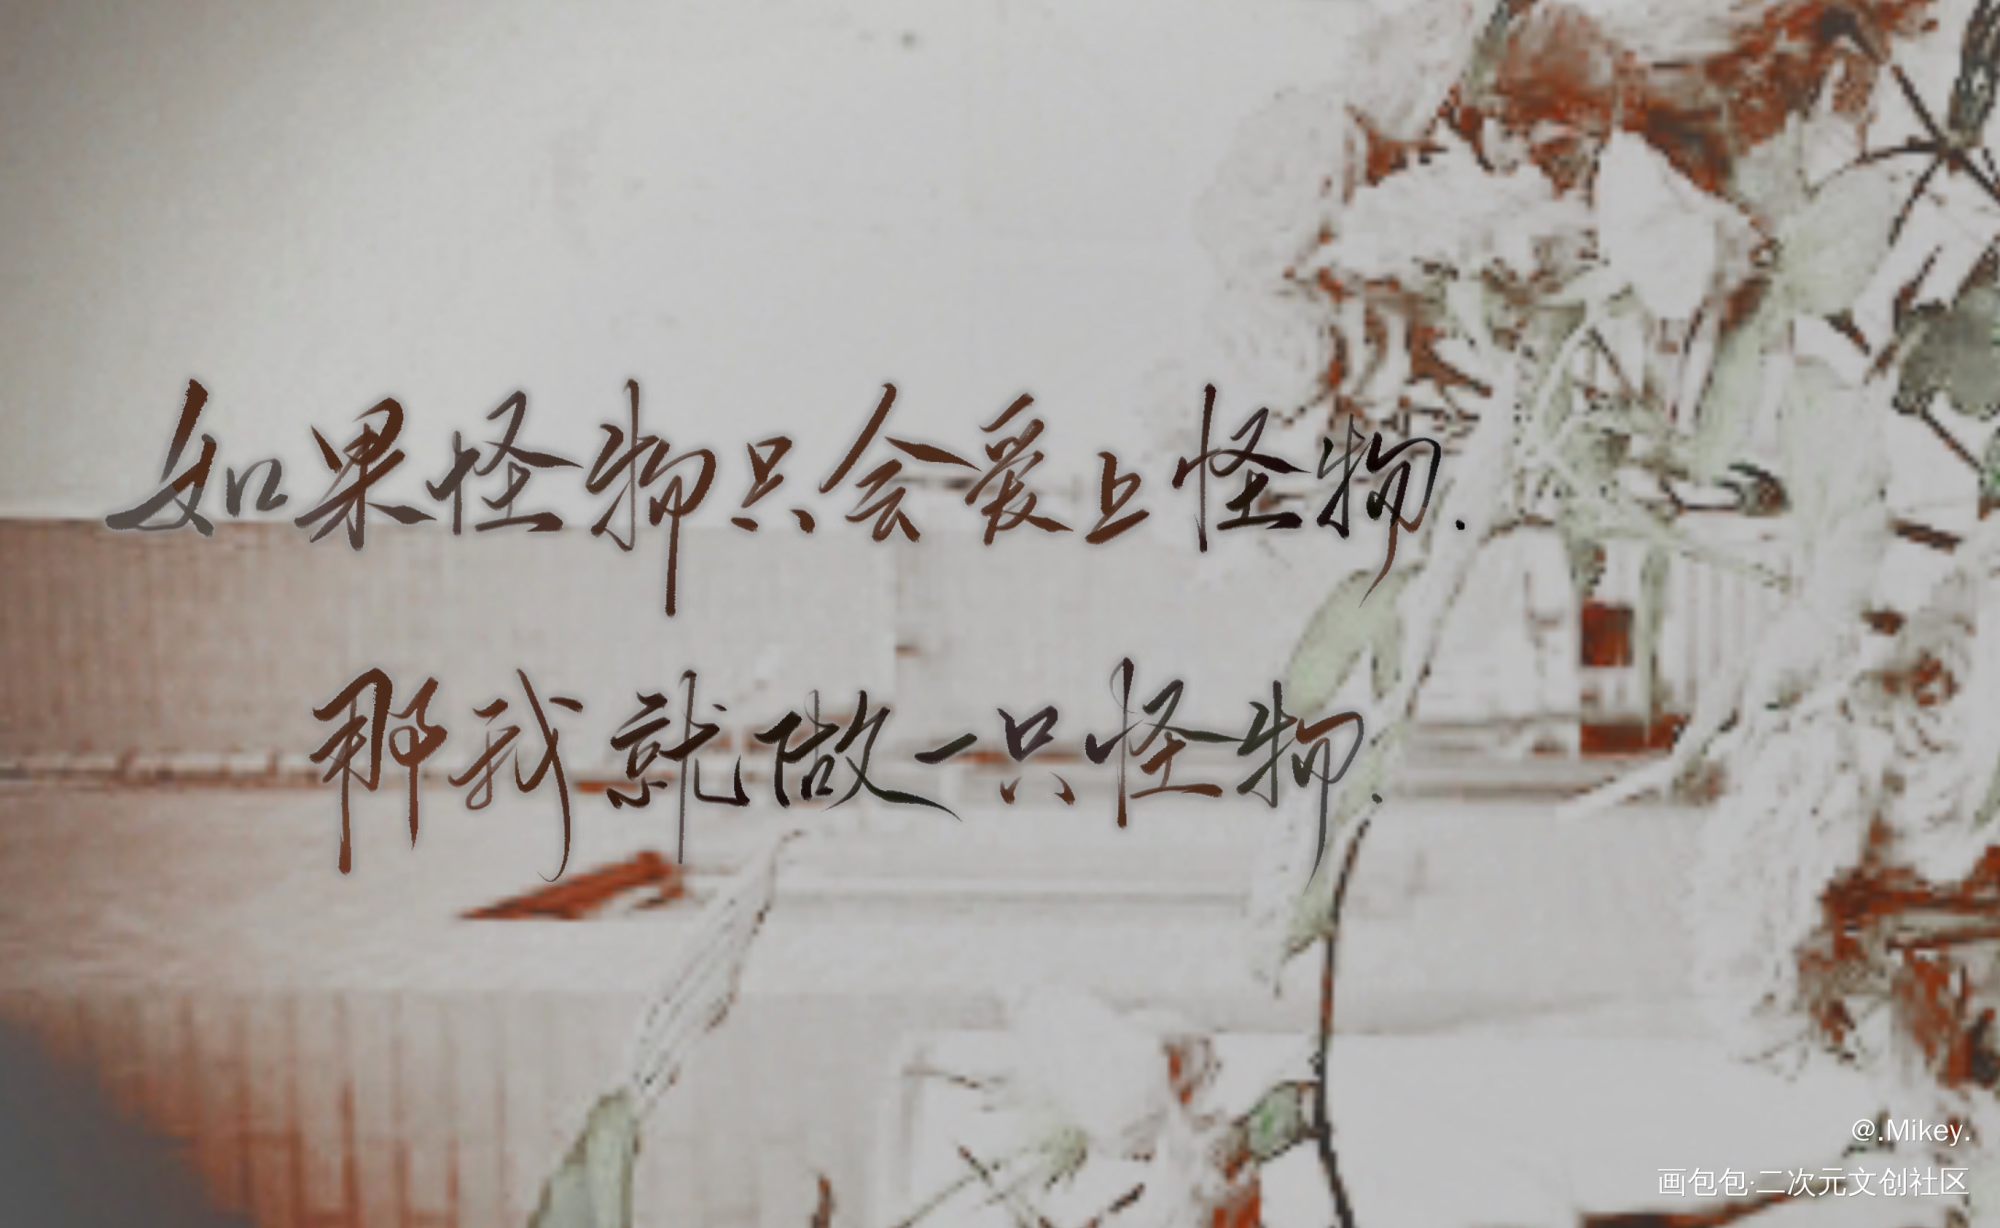 如果怪物只会爱上怪物.
那我就做一只怪物.
@.Mikey.
画包包·二次元文创社区